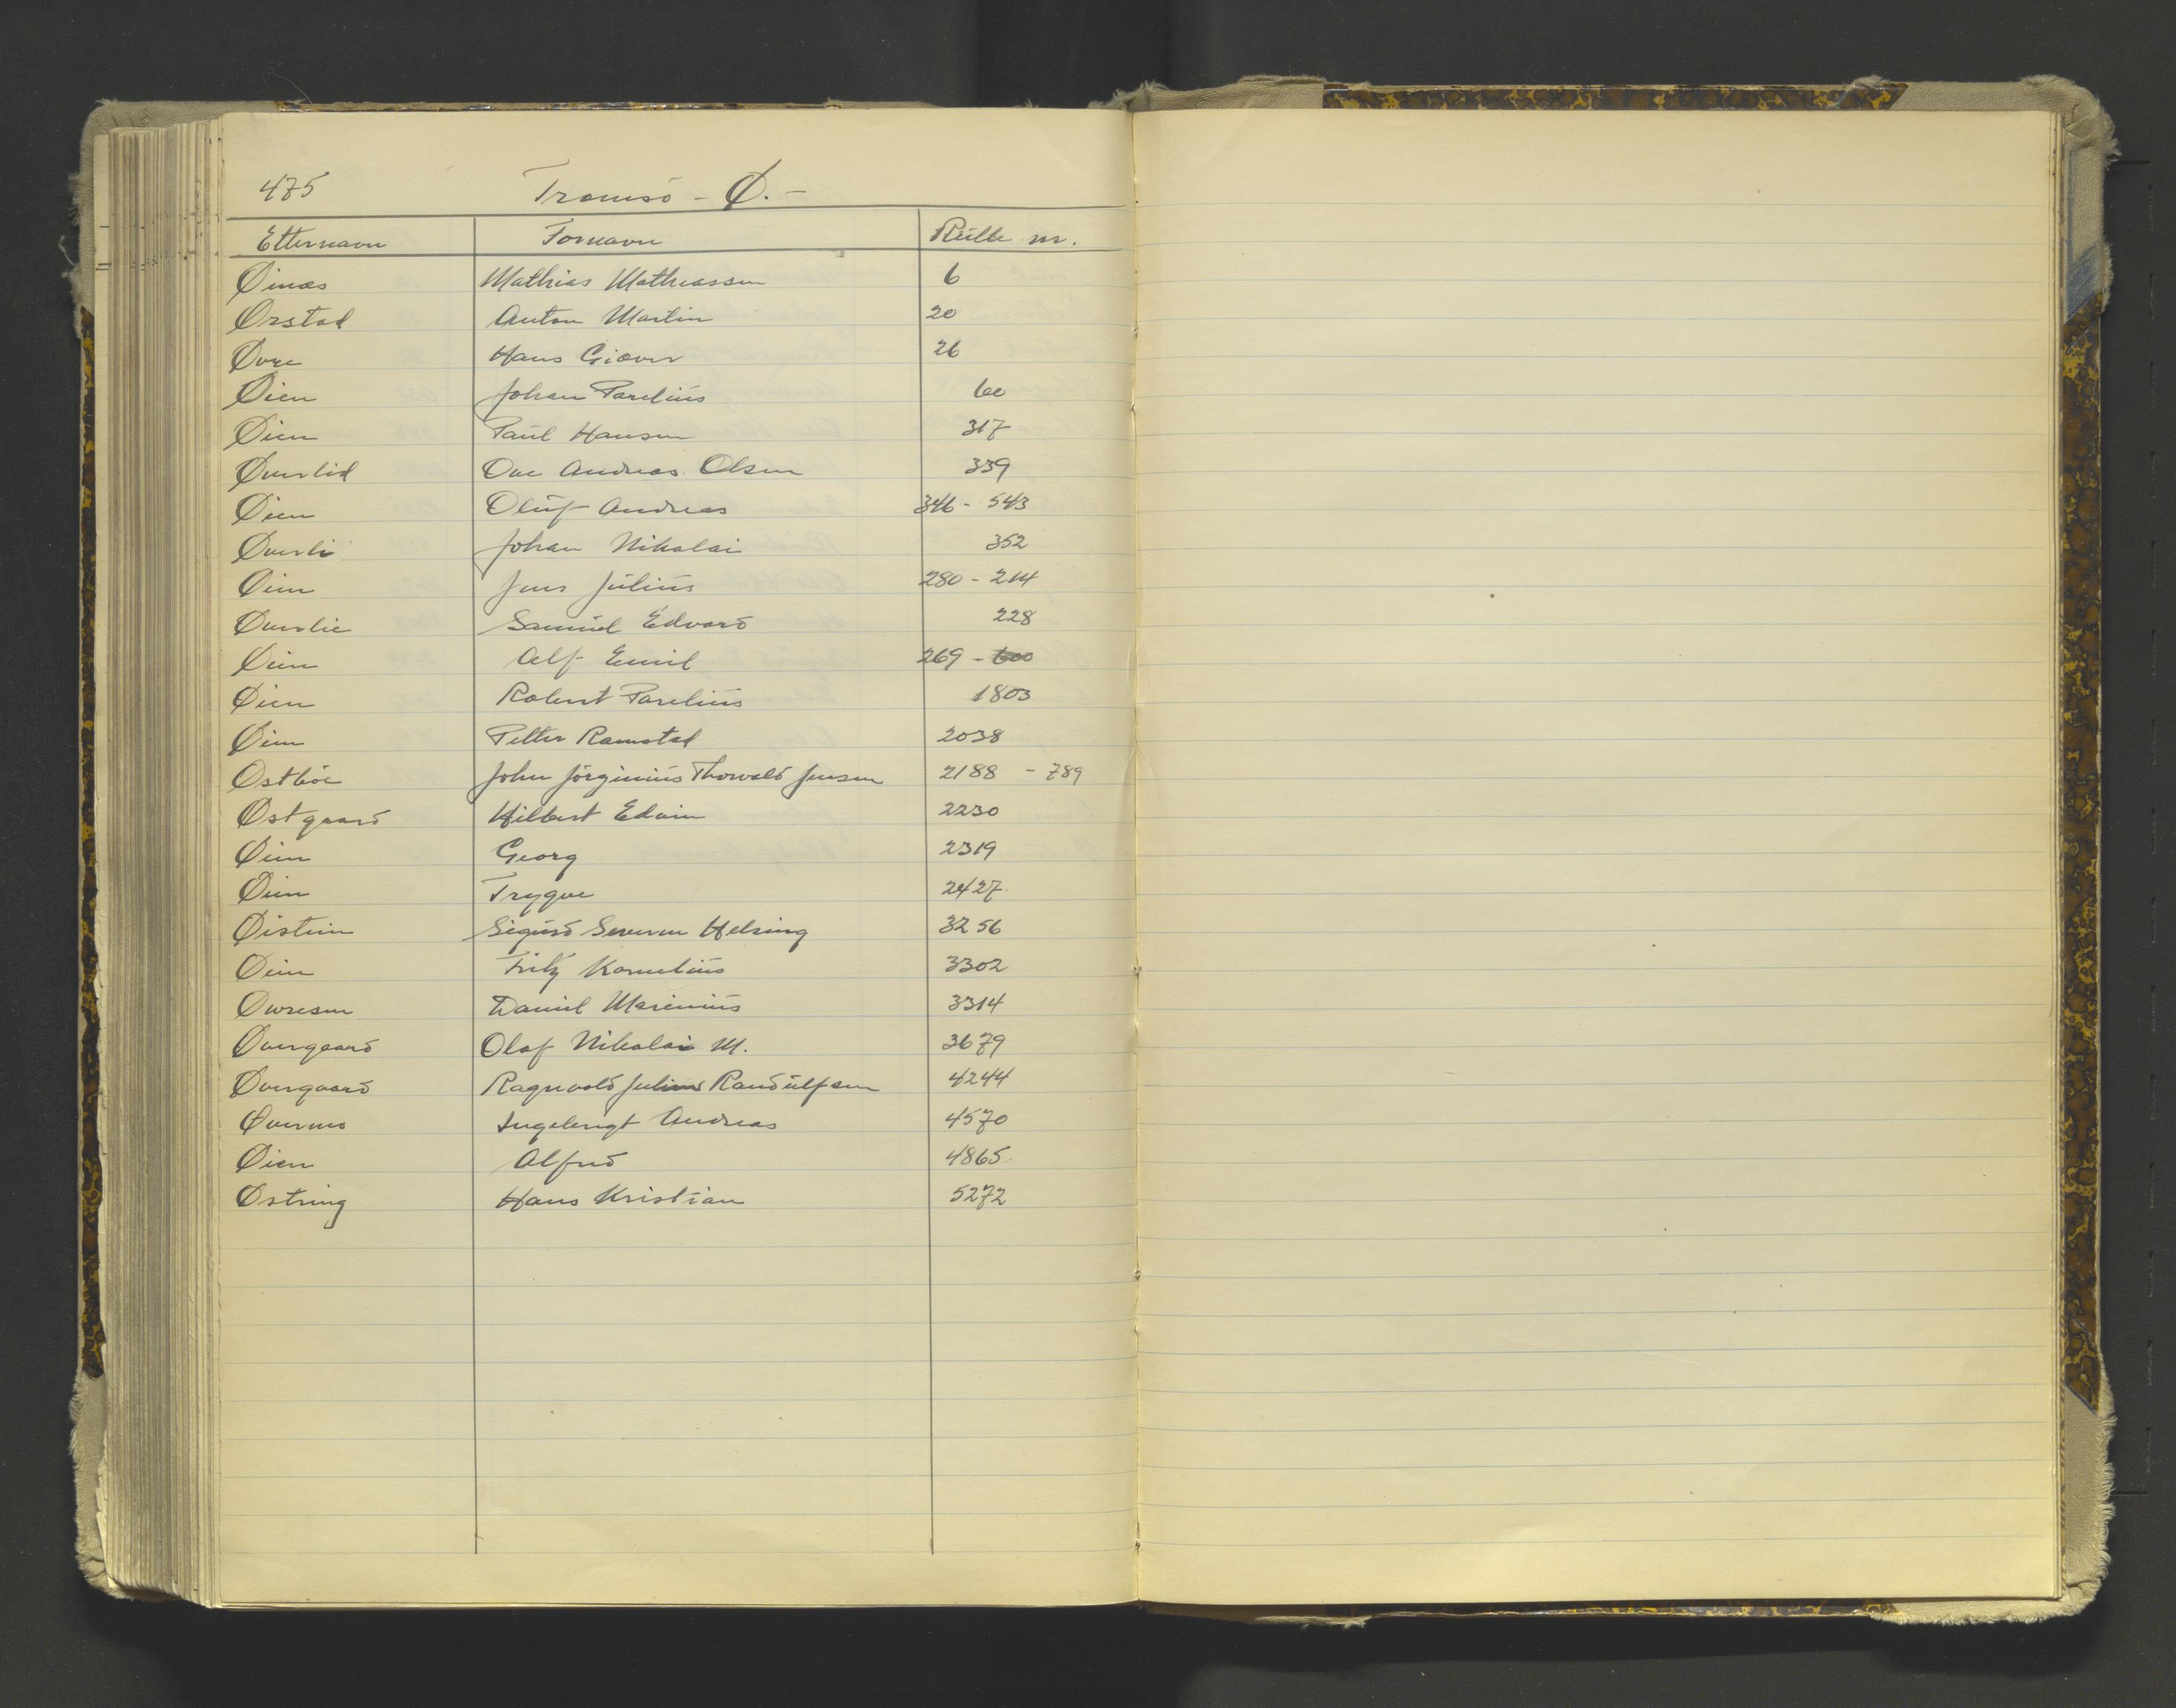 475 Tromsö - Ø. -
Etternavn Fornavn Rulle nr.
Øinæs Mathias Mathiassen 6
Ørstad Anton Martin 20
Øvre Hans Giæver 26
Øien Johan Parelius 60
Øien Paul Hansen 317
Øverlid Ove Andreas Olsen 339
Øien Oluf Andreas 346 - 543
Øverli Johan Nikolai 352
Øien Jens Julius 280 - 214
Øverlie Samuel Edvard 228
Øien Alf Emil 269 -
Øien Robert Parelius 1803
Øien Petter Ramstad 2038
Østböe John Jörginius Thorvald Jensen 2188 - 789
Østgaard Hilbert Edvin 2230
Øien Georg 2319
Øien Trygve 2427
Øistein Sigurd Severin Helsing 3256
Øien Fritz Kornelius 3302
Øwresen Daniel Marinius 3314
Øvergaard Olaf Nikolai M. 3679
Øvergaard Ragnvald Julius Randulfsen 4244
Øvermo Ingebrigt Andreas 4570
Øien Alfred 4865
Østring Hans Kristian 5272